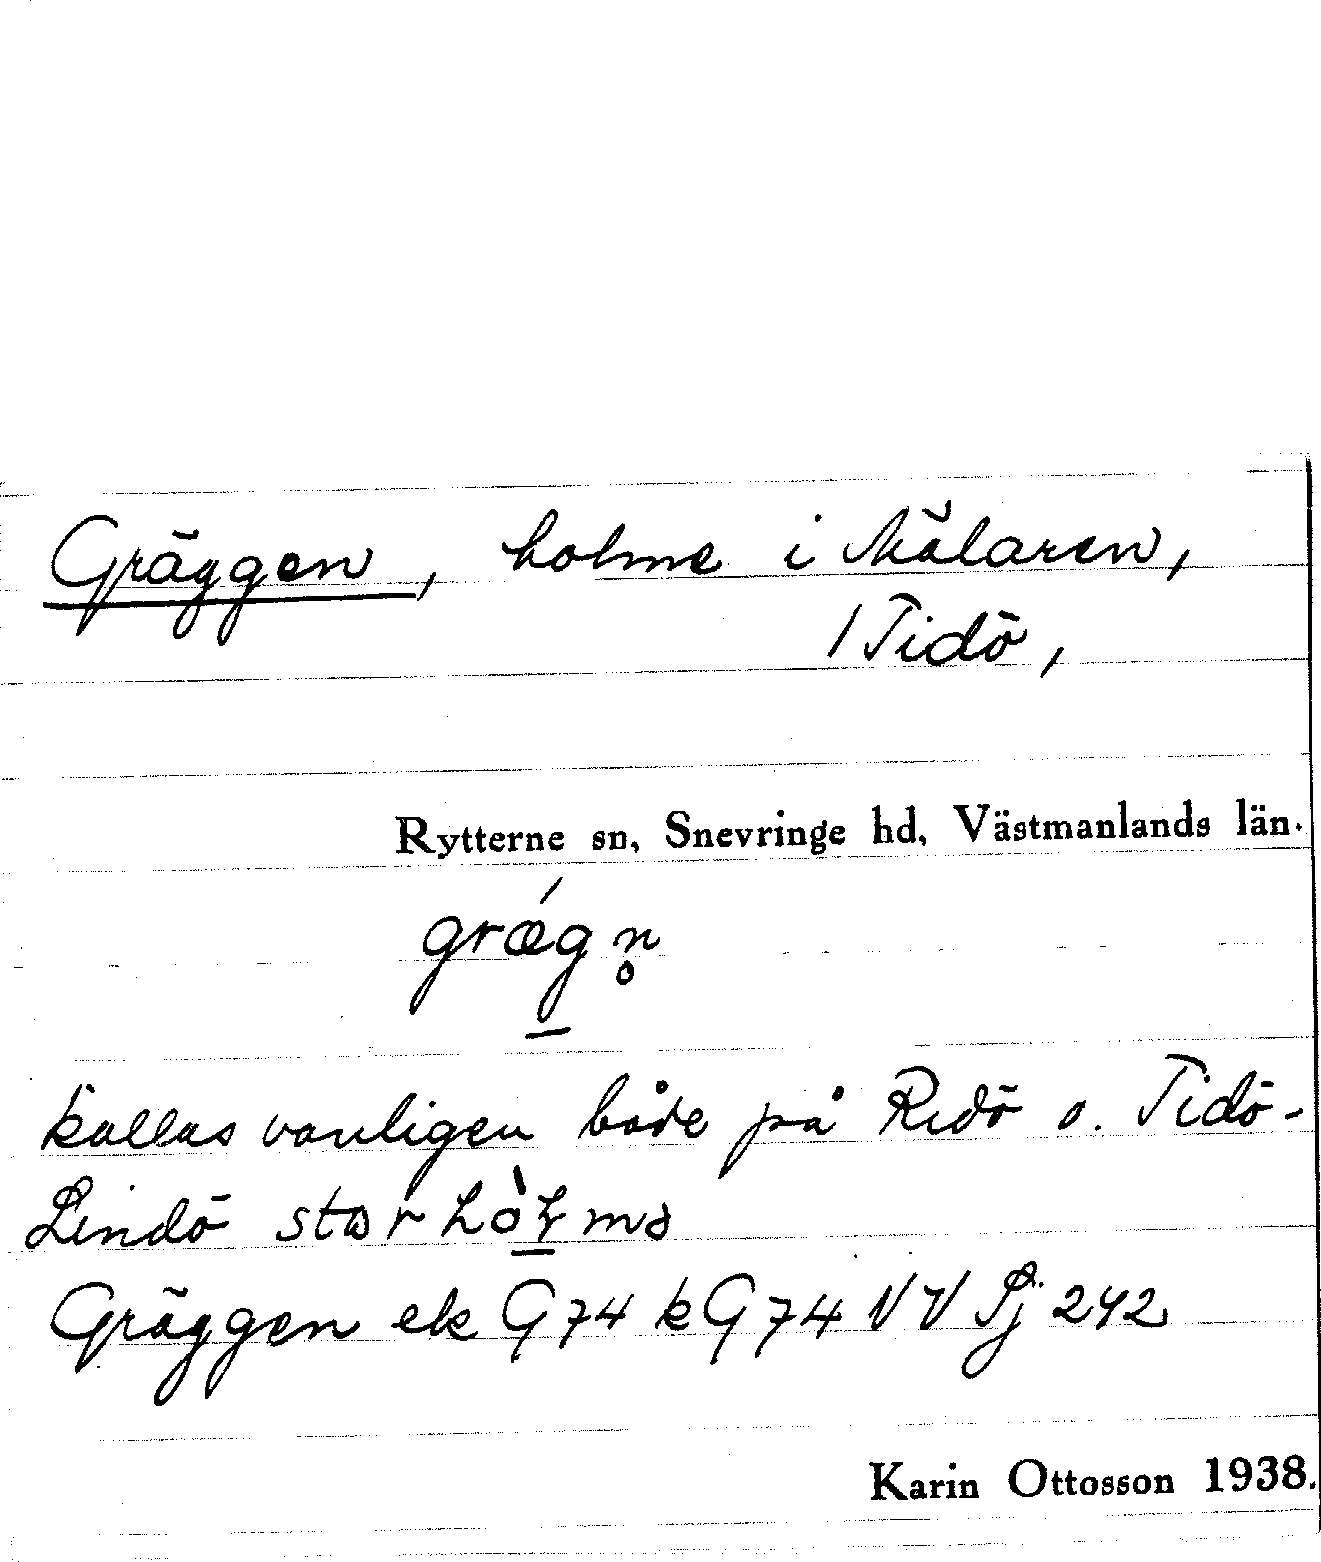 Gräggen, holme i Mälaren,
/Tidö,
Rytterne sn, Snevringe hd, Västmanlands län.
grǽg̲n̥
kallas vanligen både på Ridö o. Tidö-
Lindö
Gräggen ek G74 k G74 NV Sj 242
Karin Ottosson 1938.